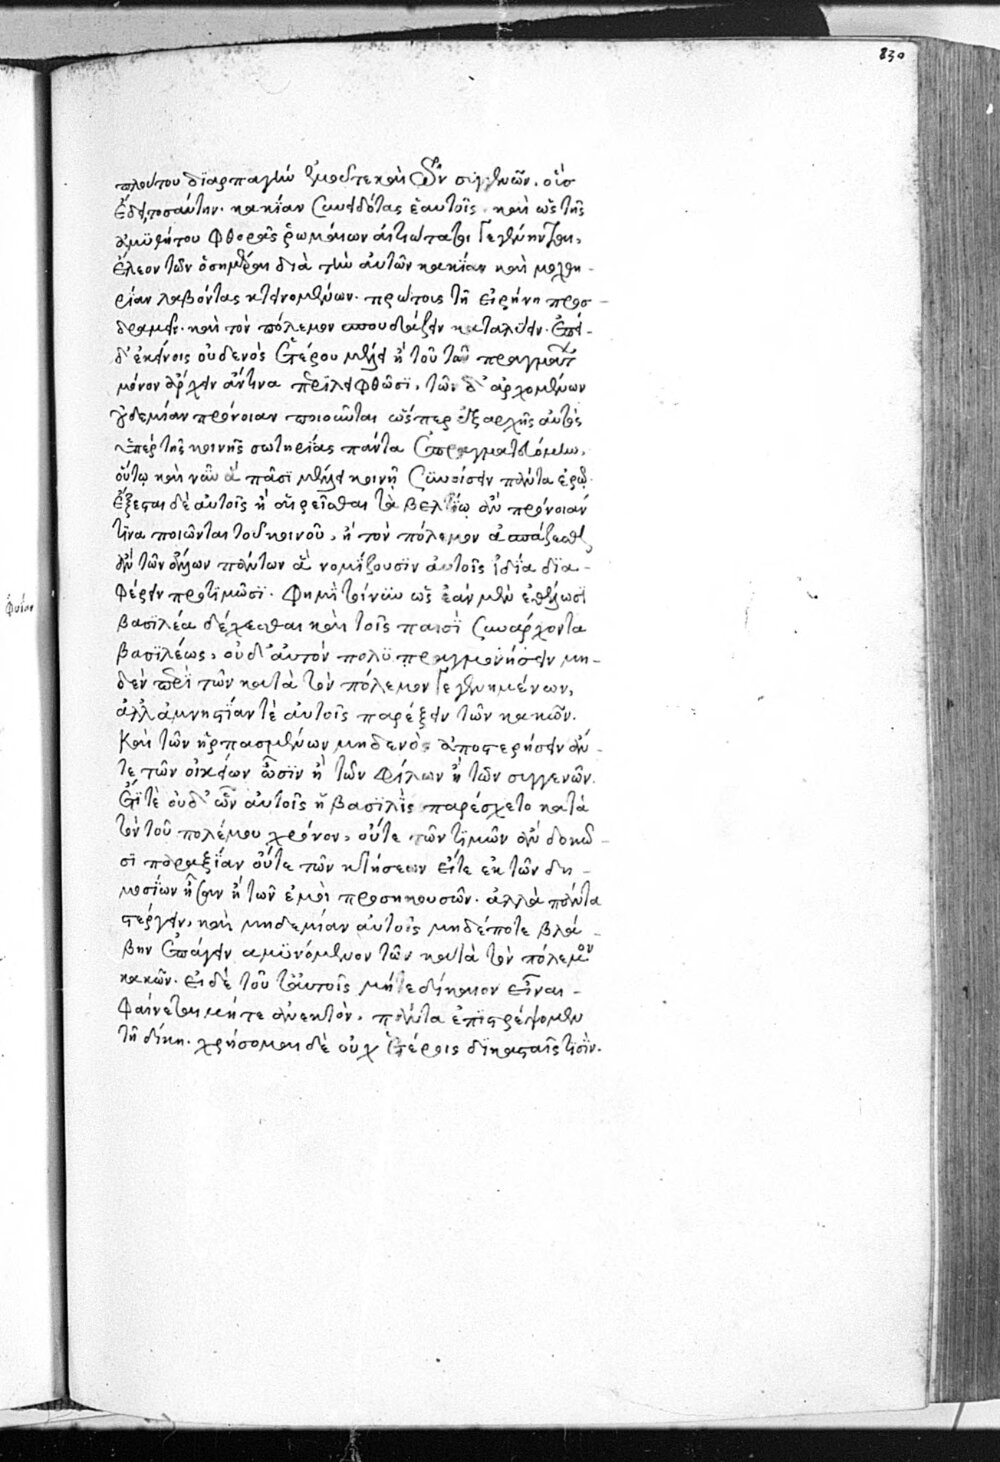 830
πλούτου διαρπαγὴν ἐμοῦ τε καὶ τῶν συγγενῶν. οὓς
ἔδει τοσαύτην κακίαν συνειδότας ἑαυτοῖς καὶ ὡς τῆς
ἀμυθήτου φθορᾶς ῥωμαίων αἰτιώτατοι γεγένηνται,
ἔλεον τῶν ὁσημέραι διὰ τὴν αὐτῶν κακίαν καὶ μοχθη-
ρίαν λαβόντας κτεινομένων. πρώτοις τῇ εἰρήνῃ προσ-
δραμεῖν. καὶ τὸν πόλεμον σπουδάζειν καταλύειν. ἐπεὶ
δ' ἐκείνοις οὐδενὸς ἑτέρου μέλει ἢ τοῦ τῶν πραγμάτων
μόνον ἄρχειν ἅτινα περιλειφθῶσι, τῶν δ' ἀρχομένων
οὐδεμίαν πρόνοιαν ποιοῦνται ὥσπερ ἐξαρχῆς αὐτὸς
ὑπὲρ τῆς κοινῆς σωτηρίας πάντα ἐπραγματευόμην,
οὕτω καὶ νῦν ἃ πᾶσι μέλλει κοινῇ συνοίσειν πάντα ἐρῶ.
ἐξέσται δὲ αὐτοῖς ἢ αἱρεῖσθαι τὰ βελτίω ἂν πρόνοιάν
τινα ποιῶνται τοῦ κοινοῦ, ἢ τὸν πόλεμον ἀσπάζεσθαι
ἂν τῶν ἄλλων πάντων ἃ νομίζουσιν αὐτοῖς ἰδίᾳ δια-
φέρειν προτιμῶσι. φημὶ τοίνυν ὡς ἐὰν μὲν ἐθέλωσι
βασιλέα δέχεσθαι καὶ τοῖς παισὶ συνάρχοντα
βασιλέως, οὐδ' αὐτὸν πολυπραγμονήσειν μη-
δὲν περὶ τῶν κατὰ τὸν πόλεμον γεγενημένων,
ἀλλ' ἀμνηστίαν τὲ αὐτοῖς παρέξειν τῶν κακῶν.
Καὶ τῶν ἡρπασμένων μηδενὸς ἀποστερήσειν ἄν
τε τῶν οἰκείων ὦσιν ἢ τῶν φίλων ἢ τῶν συγγενῶν.
Εἴτε οὐδ' ὧν αὐτοῖς ἡ βασιλὶς παρέσχετο κατὰ
τὸν τοῦ πολέμου χρόνον, οὔτε τῶν τιμῶν ἂν δοκῶ-
σι παραξίαν οὔτε τῶν κτήσεων εἴτε ἐκ τῶν δη-
μοσίων ἦσαν ἢ τῶν ἐμοὶ προσηκουσῶν. ἀλλὰ πάντα
στέργειν, καὶ μηδεμίαν αὐτοῖς μηδέποτε βλά-
βην ἐπάγειν ἀμυνόμενον τῶν κατὰ τὸν πόλεμον
κακῶν. εἰ δὲ τοῦτ' αὐτοῖς μήτε δίκαιον εἶναι
φαίνεται μήτε ἀνεκτὸν, πάντα ἐπιτρέψομεν
τῇ δίκῃ. χρήσομαι δὲ οὐχ ἑτέροις δικασταῖς τισὶν.